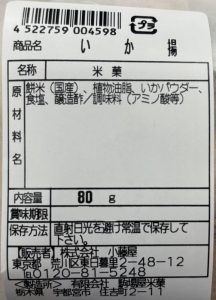 プラ
4 522759 004598
商品名 いか揚
名称 米菓
原材料名 餅米(国産)、植物油脂、いかパウダー、
食塩、醸造酢/調味料(アミノ酸等)
内容量 80 g
賞味期限
保存方法 直射日光を避け常温で保存して
下さい。
【販売者】株式会社 小藤屋
東京都 荒川区東日暮里2-48-12
℡0120-81-5248
【製造者】有限会社 製菓
栃木県 宇都宮市 住吉町2-11